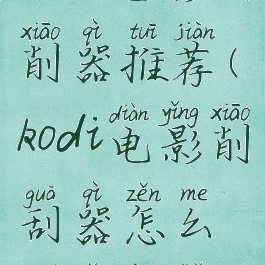 xiāo qì tuī jiàn
削器推荐(
diàn yǐng xiāo
kodi电影削
guā qì zěn me
刮器怎么